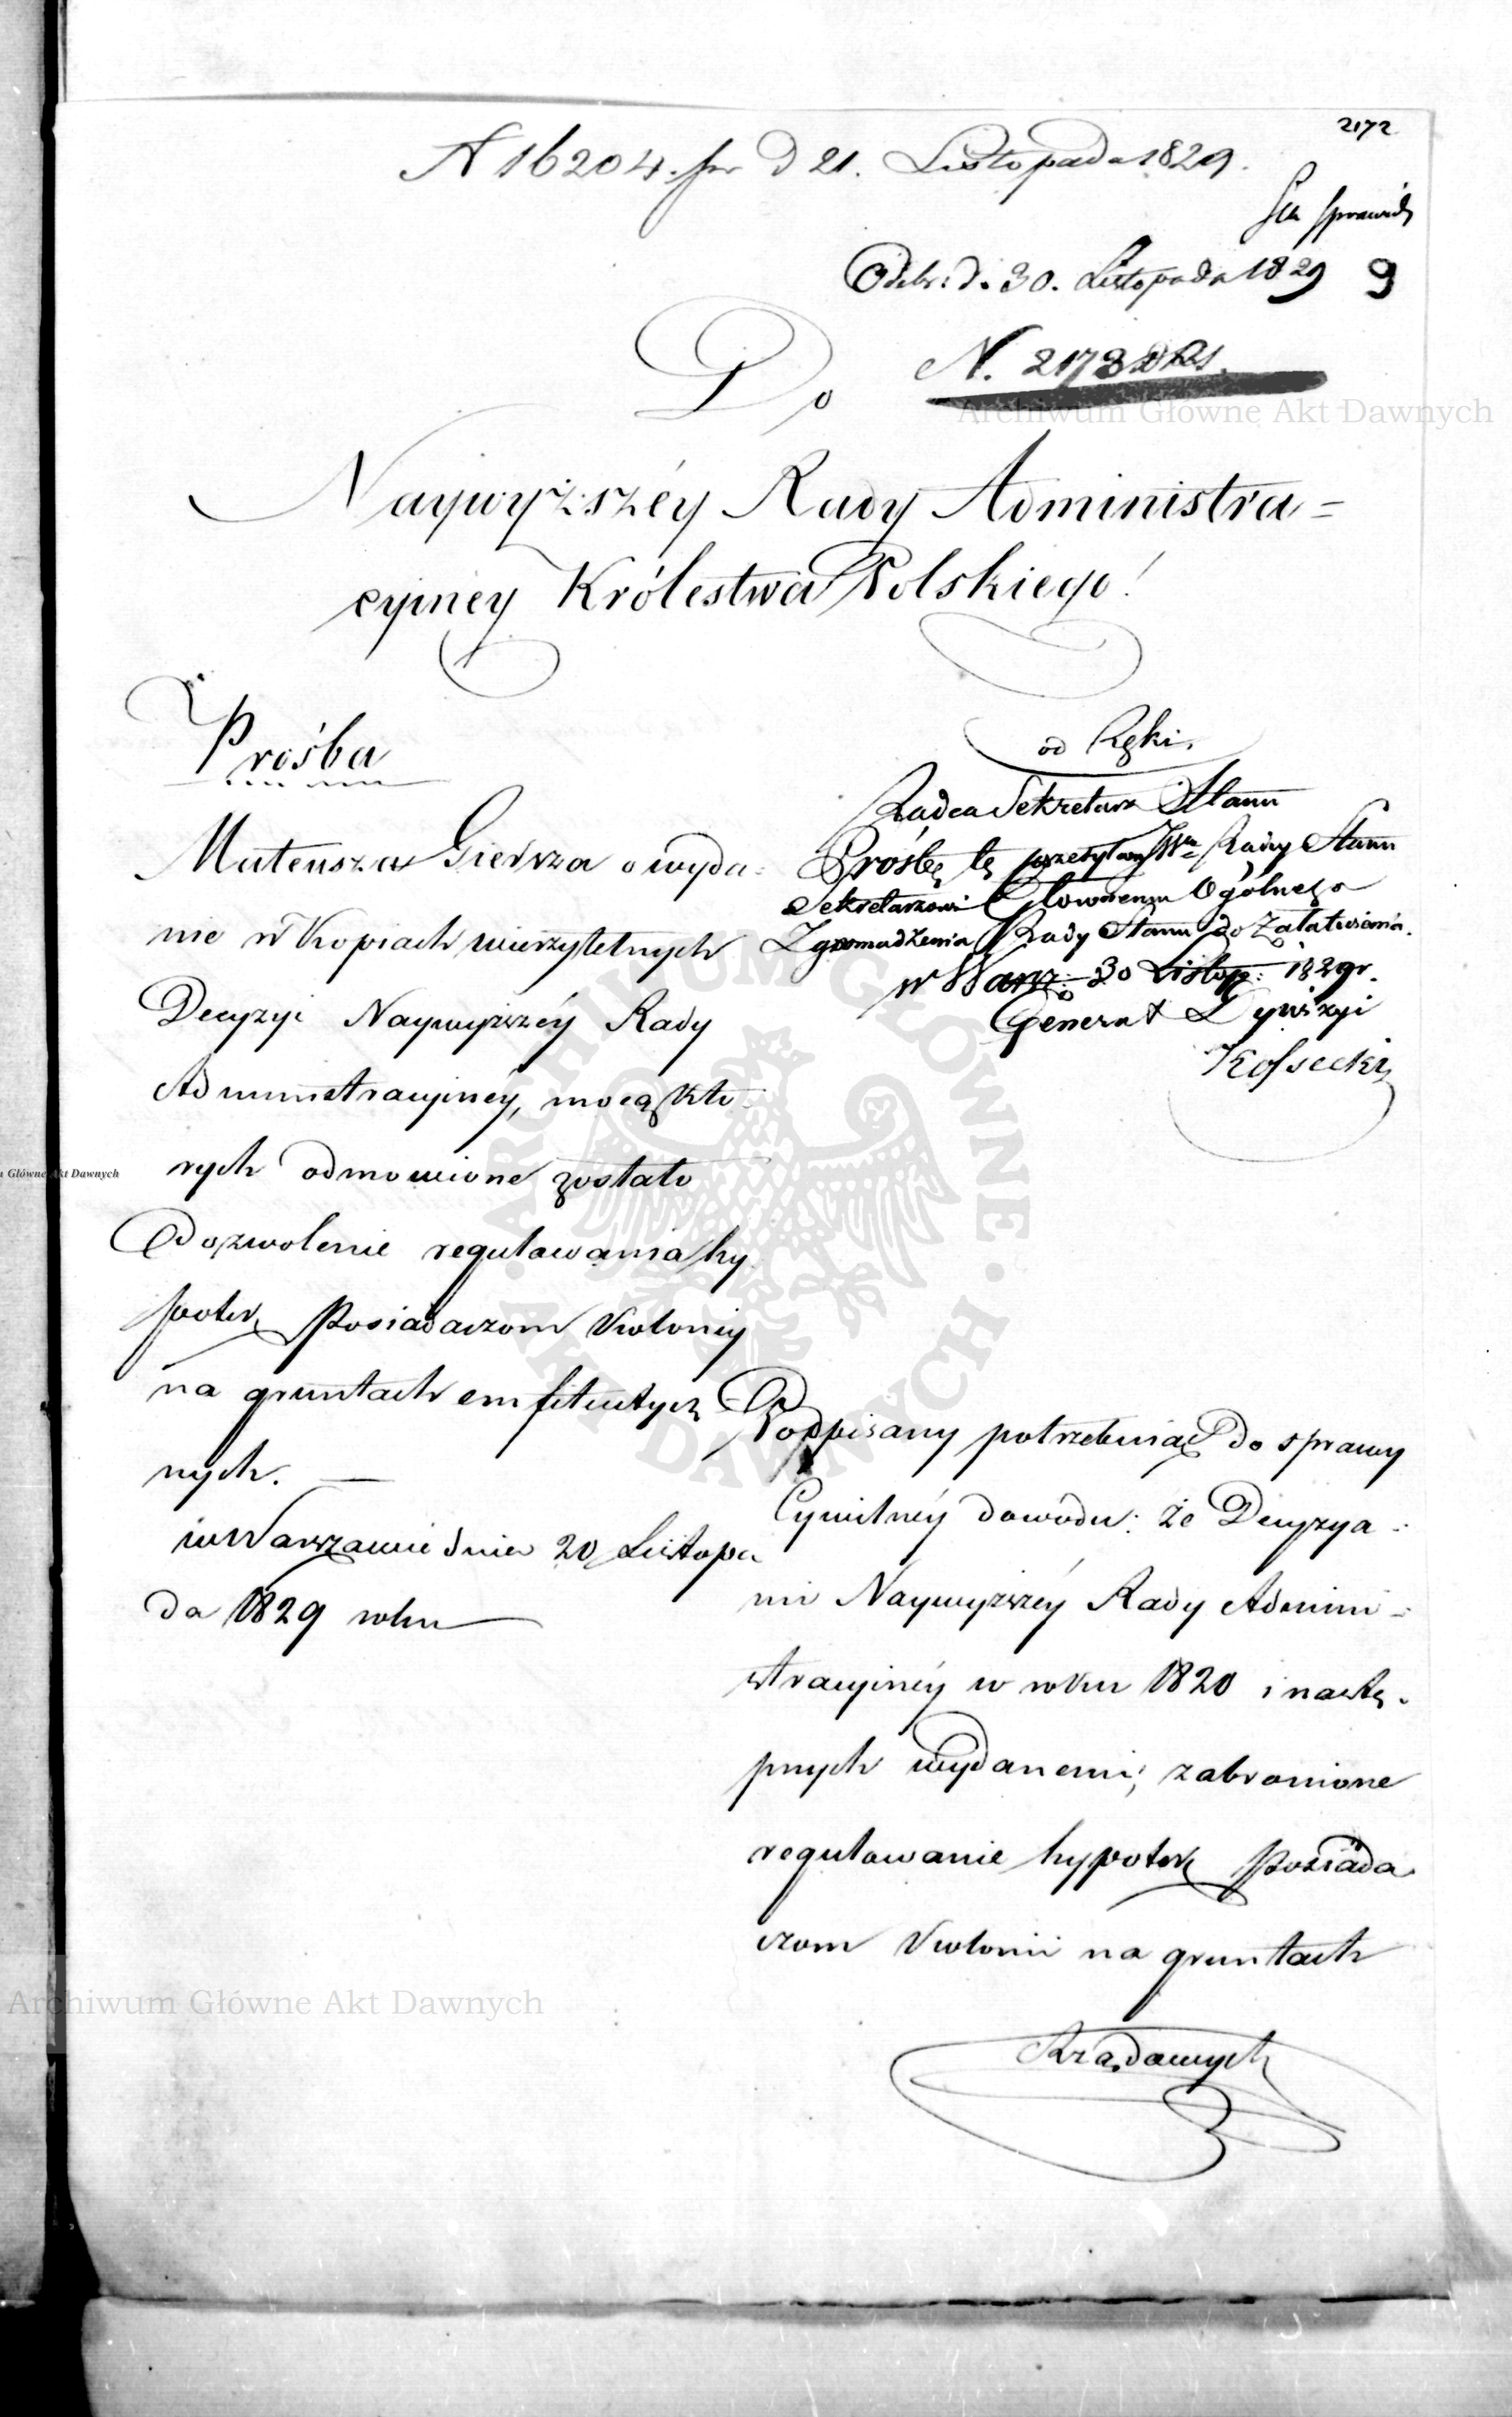 2172
N 16204. pr d 21. Listopada 1829.
Odebr: d. 30. Listopada 1829
9
N. 2173
Do
Naywyższéy Rady Administra=
cyjnéy Królestwa Polskiego!
Prośba
Mateusza Giersza o wyda-
nie w Kopiach wierzytelnych
Decyzyi Naywyższéy Rady
Administracyjnéy, mocą któ-
rych odmowione zostało
Dozwolenie regulowania hy
potek Posiadaczom Kolonij
na gruntach emfiteutycz
nych. —
w Warszawie dnia 20 Listopa
da 1829 roku
od Ręki.
Radca Sekretarz Stanu
Prośbę tę przesyłam JW Rady Stanu
Sekretarzowi Głównemu Ogólnego
Zgromadzenia Rady Stanu do Załatwienia.
w Warsz: 30 Listop: 1829 r.
Generał Dywizyi
Kossecki
Podpisany potrzebuiąc do sprawy
Cywilnéy dowodu: że Decyzya-
mi Naywyższéy Rady Admini-
stracyjnéy w roku 1820 i nastę-
pnych wydanemi, zabronione
regulowanie hypotek Posiada
czom Kolonii na gruntach
Rządowych
Archiwum Główne Akt Dawnych
Główne Akt Dawnych
ARCHIWUM GŁÓWNE · AKT DAWNYCH ·
Archiwum Główne Akt Dawnych